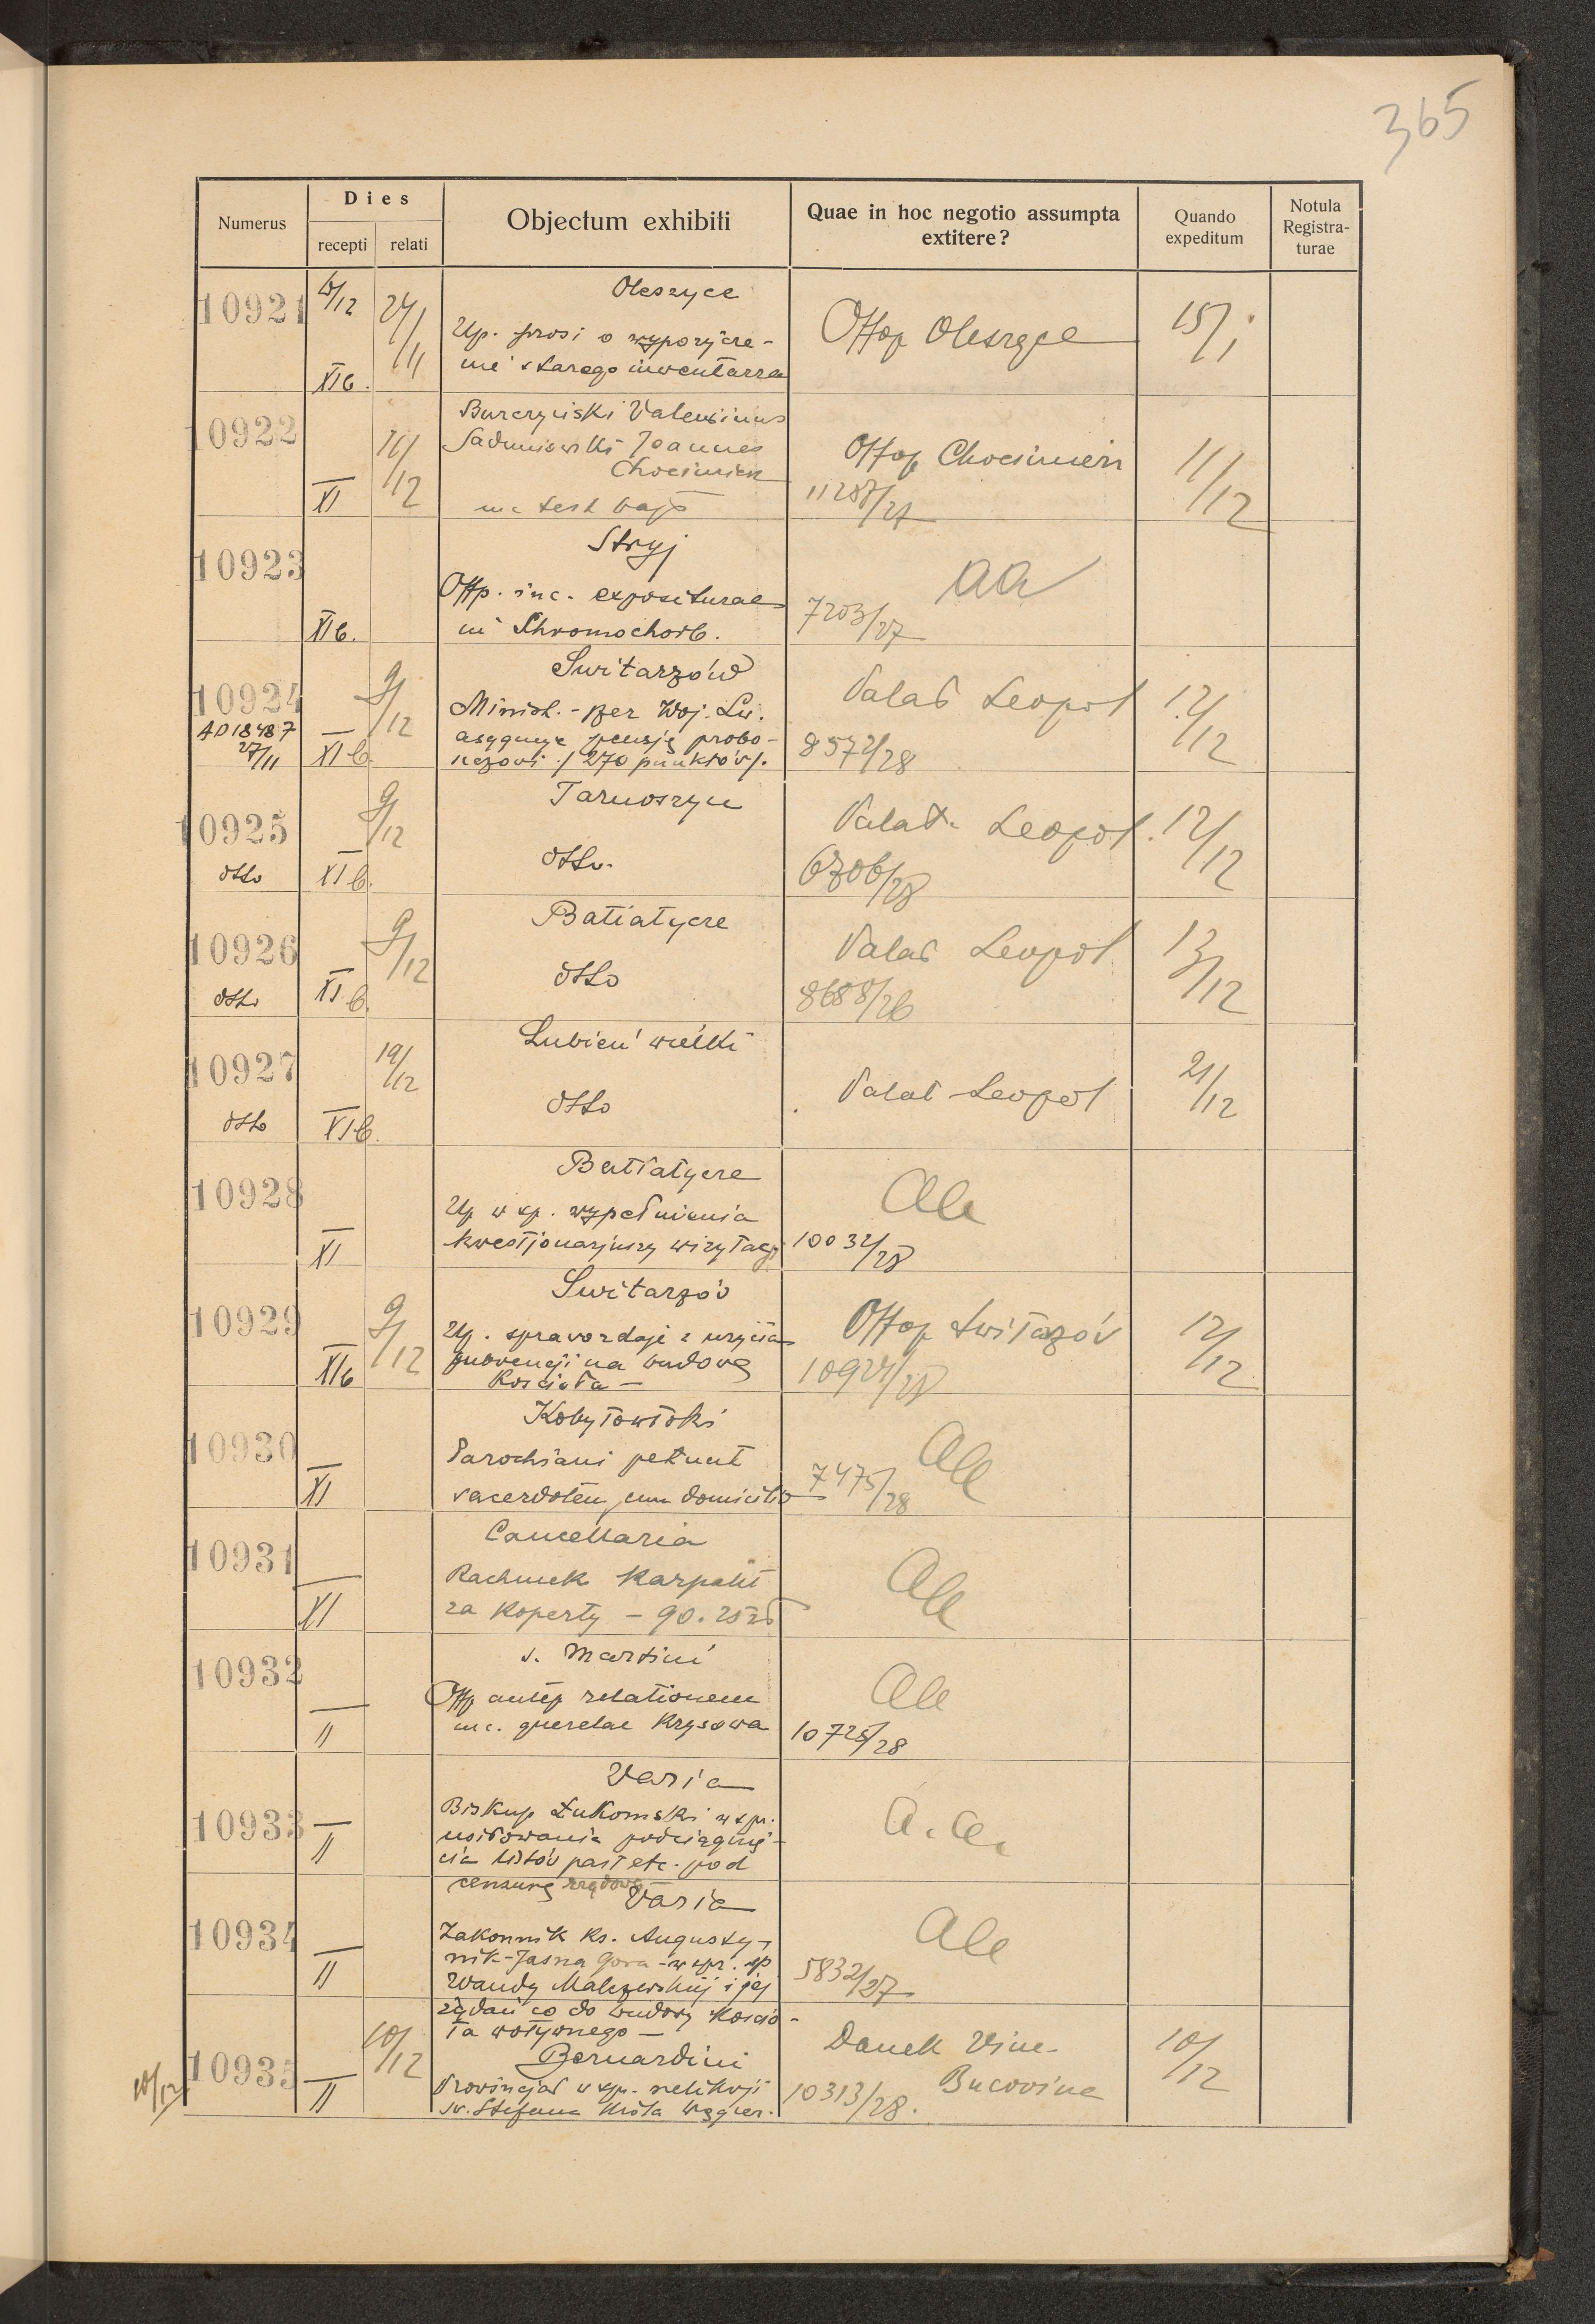 365
Numerus
Dies
recepti
relati
Objectum exhibiti
Quae in hoc negotio assumpta
extitere?
Quando
expeditum
Notula
Registra-
turae
10921
XIb.
Oleszyce
prosi o wypożycze-
nie starego inwentarza
Offop Oleszyce
15/1
10922
XI
/12
Valentinus
Joannes
Chocimierz
Offop Chocimierz
11287/27
11/12
10923
XIb.
Stryj
Offp. inc. expositurae
in
aa
7203/27
10924
AD 18487
27/11
9/12
XIb.
Switarzów
Minist. - per Woj. Lw.
asygnuje pensję probo-
szczowi /270 punktów/.
Palat Leopol
8572/28
12/12
10925
dtto
9/12
XIb.
Tarnoszyn
dtto.
Palat. Leopol.
6306/28
12/12
10926
dtto
9/12
XIb.
Batiatycze
dtto
Palat Leopol
8688/26
13/12
10927
dtto
19/12
XIb.
Lubień wielki
dtto
Palat Leopol
21/12
10928
XI
Batiatycze
Up w sp. wypełnienia
kwestjonarjuszy wizytacyj
10032/28
10929
9/12
XIb
Switarzów
Up. sprawozdaje z użycia
subwencji na budowę
Kościoła –
Offop Switazów
10924/28
12/12
10930
XI
Kobyłowłoki
Parochiani petunt
sacerdotem cum domicilio
7475/28
10931
XI
Cancellaria
Rachunek Karpalit
za koperty – 90.25 zł
10932
II
s. Martini
Offp relationem
inc. querelae Krysowa
10725/28
10933
II
Varia
Biskup Łukomski w spr.
usiłowania podciągnię-
cia listów past etc. pod
cenzurę rządową
a.a.
10934
II
Varia
Zakonnik Ks. Augusty-
nik - Jasna Gora - w spr. śp
Wandy Malczewskiej i jej
żądań co do budowy kościo-
ła wotywnego –
5832/27
10/12
10935
10/12
II
Bernardini
Prowincjał w sp. relikwji
św. Stefana Króla węgier.
Danek Vinc.
Bucovina
10313/28.
10/12